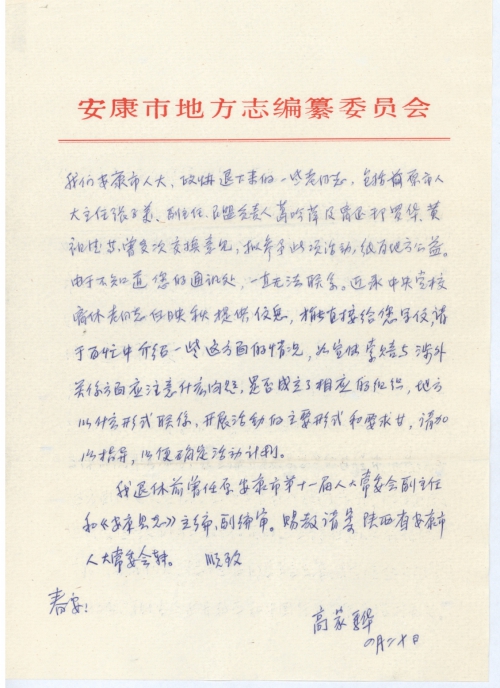 安康市地方志编纂委员会
我们安康市人大、政协退下来的一些老同志,包括前原市人
大主任张子美、副主任、民盟负责人
祖佳、曾多次交换意见,拟参予此项活动,
由于不知道您的通讯处,一直无法联系。近承中央党校
离休老同志任映秋提供信息,接给您写信,请
于百忙中介绍一些这方面的情况,如宣传索赔与涉外
关系方面应注意什么问题,是否成立了相应的组织,地方
以什么形式联系,开展活动的主要形式和要求等,请加
以指导,以便确定活动计划。
我退休前曾任原安康市第十一届人大常委会副主任
和《安康县志》主编、副编审。赐教请寄陕西省安康市
人大常委会转。 顺致
春安!
高
四月二十日